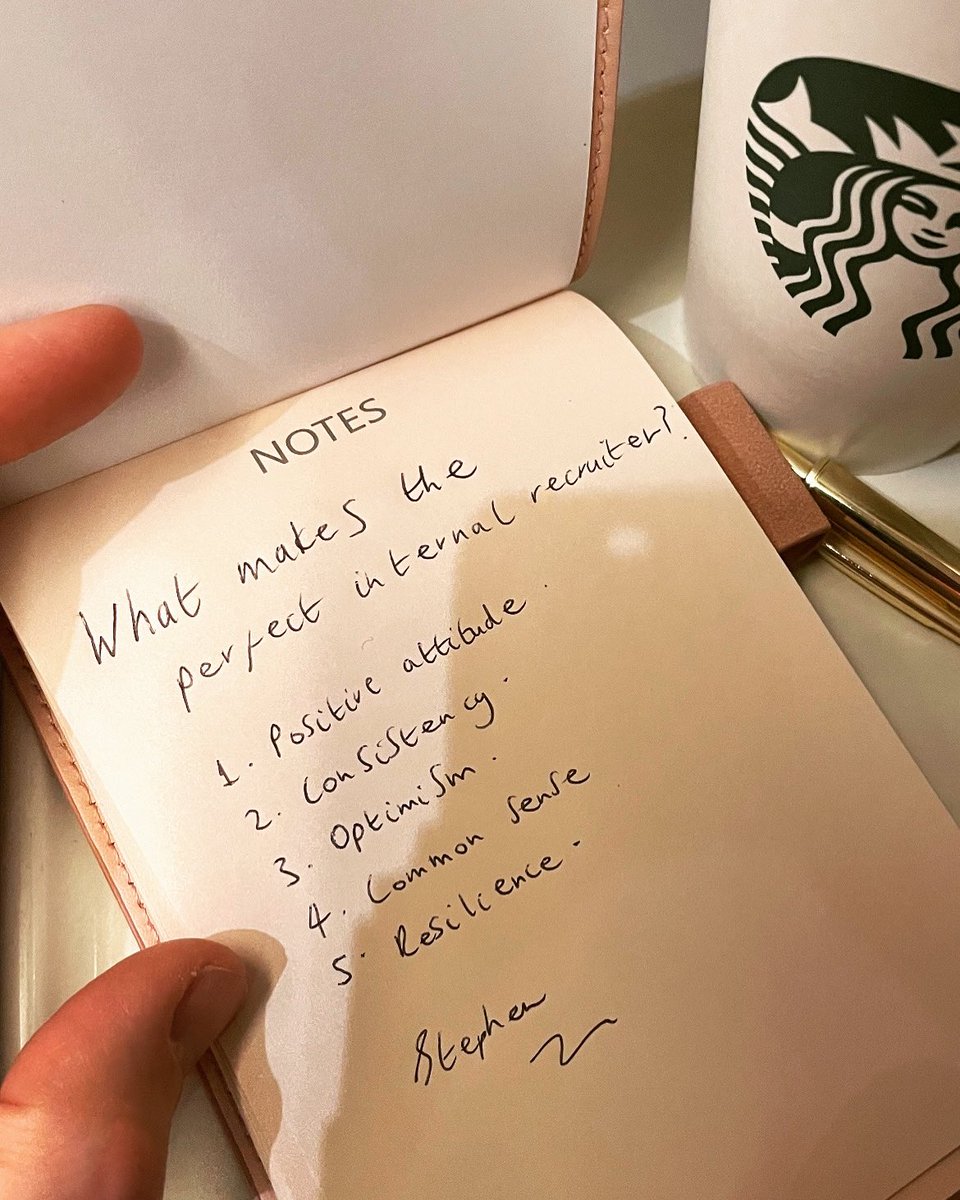 NOTES
What makes the
perfect internal recruiter?
1. Positive attitude.
2. Consistency.
3. Optimism.
4. Common sense
5. Resilience.
Stephen